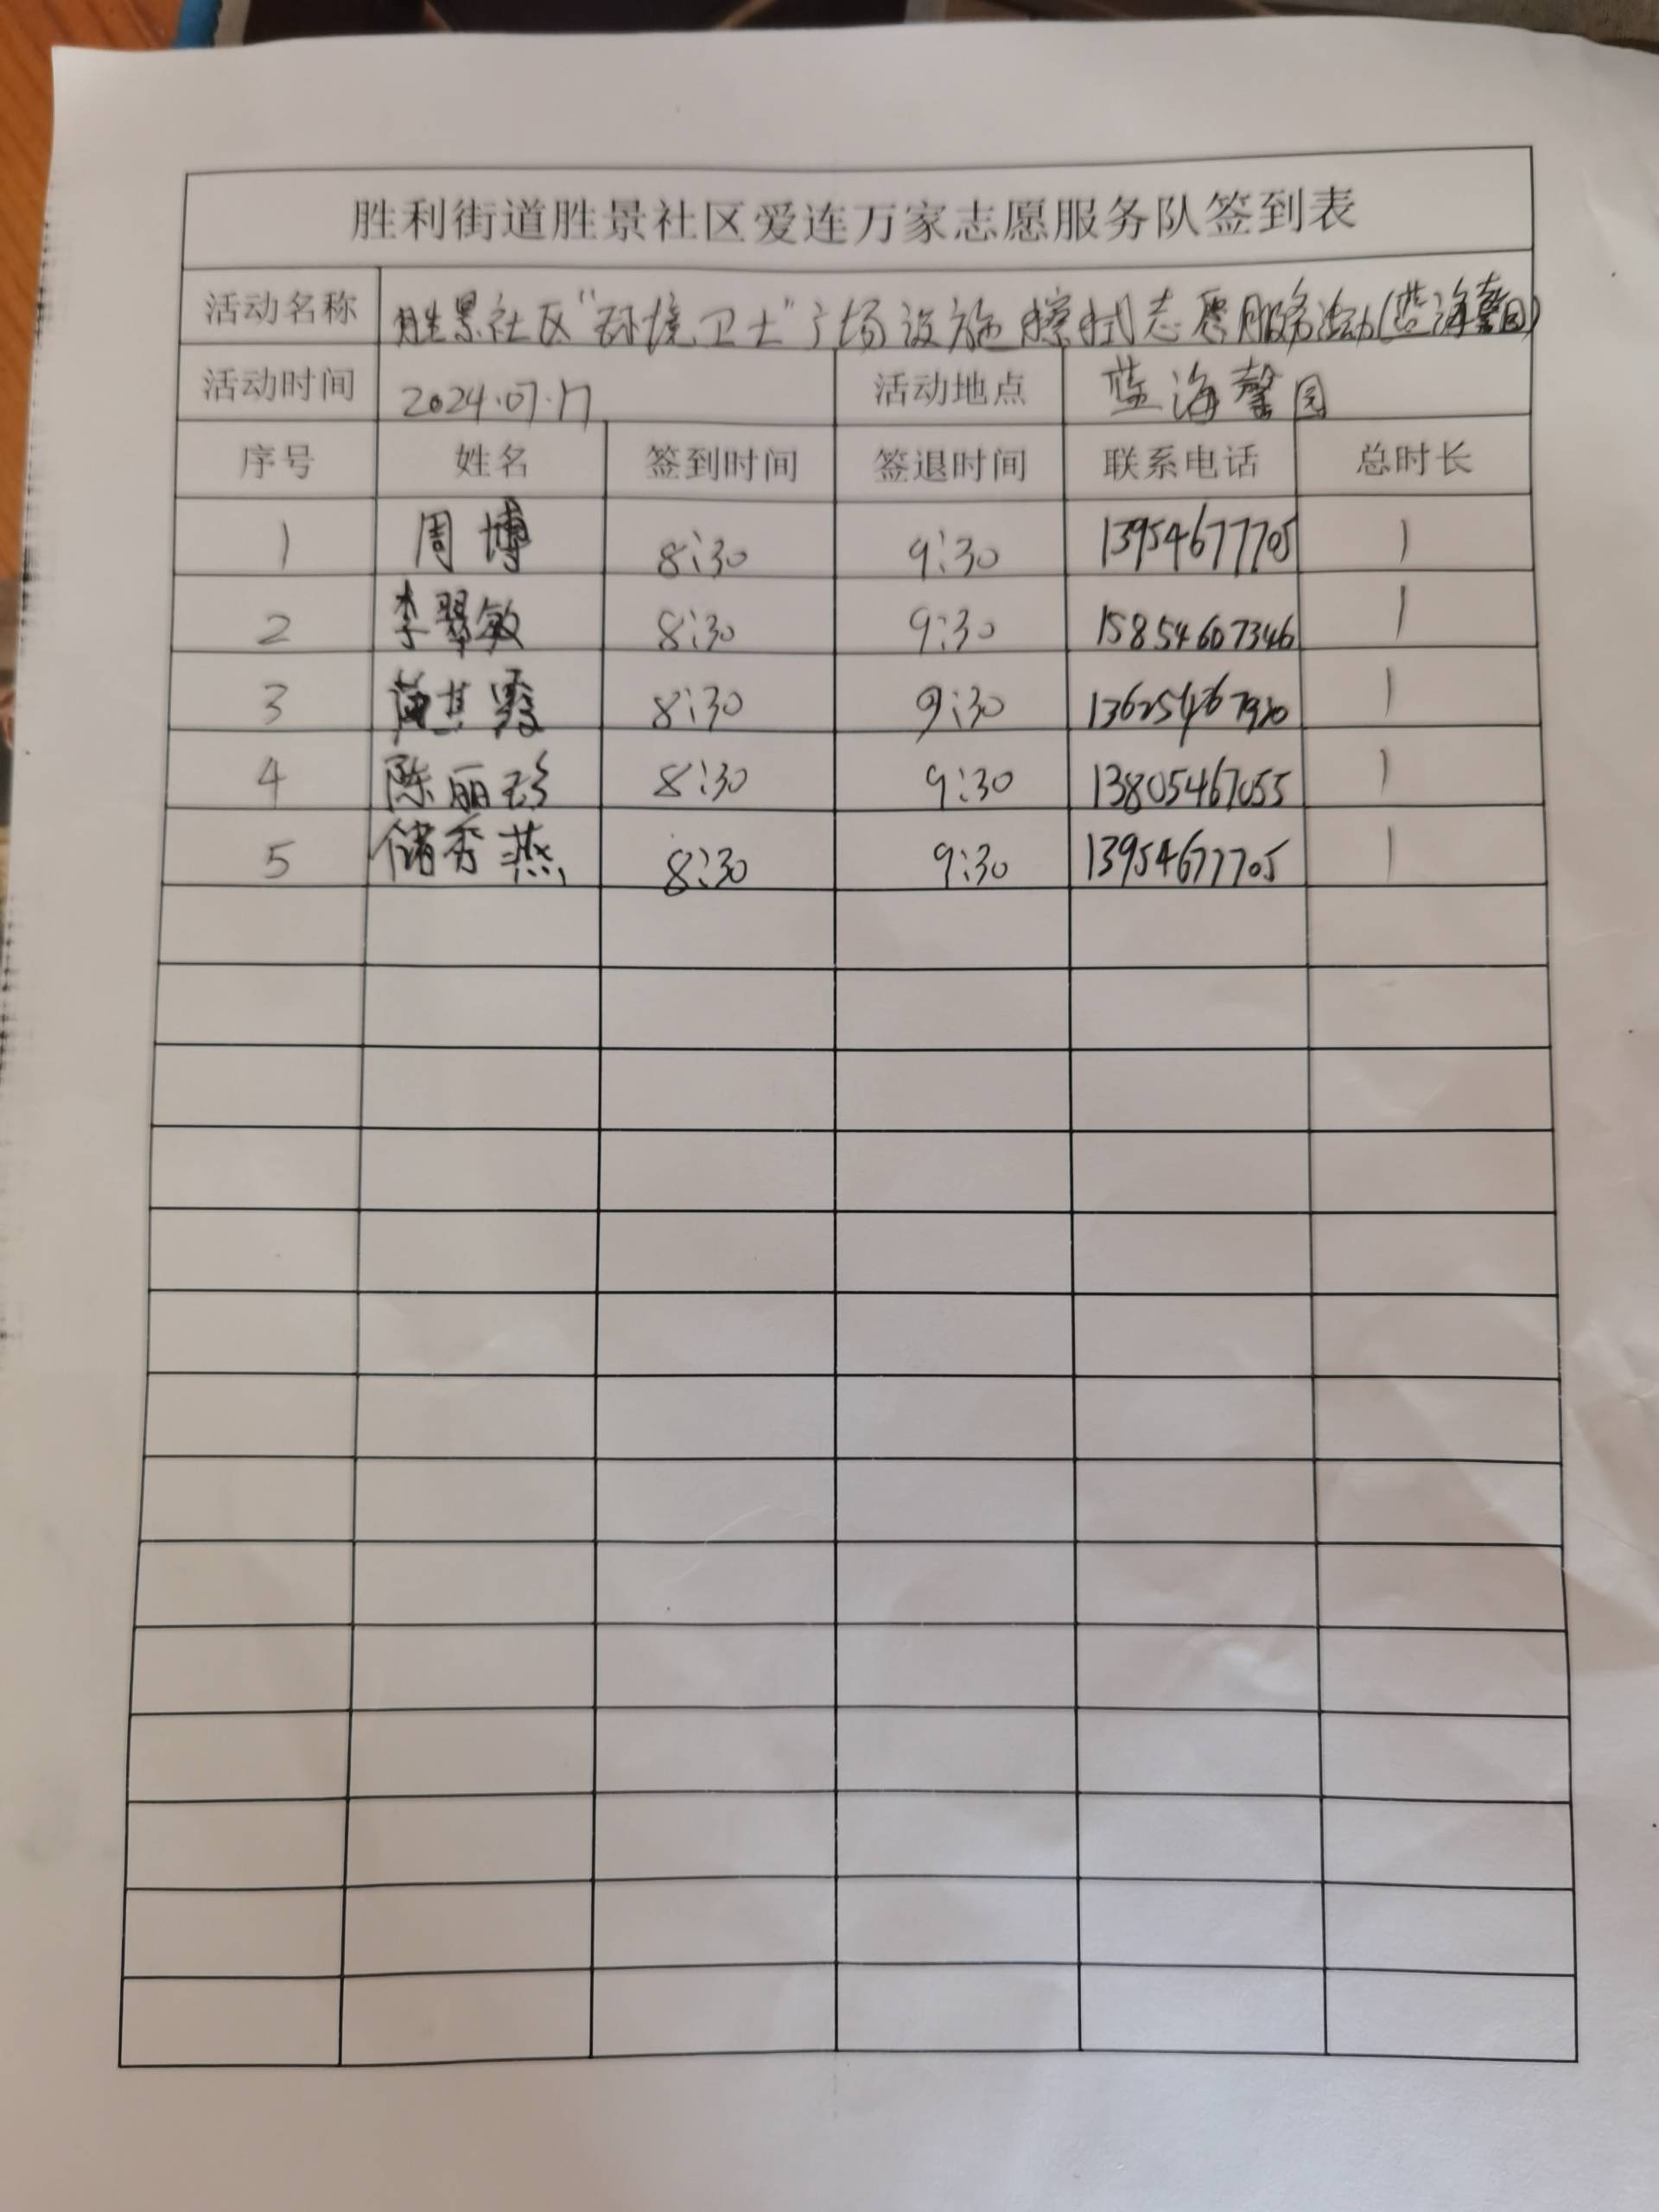 胜利街道胜景社区爱连万家志愿服务队签到表
活动名称 胜景社区"环境卫士"广场设施擦拭志愿服务活动(蓝海馨园)
活动时间 2024.07.17 活动地点 蓝海馨园
序号 姓名 签到时间 签退时间 联系电话 总时长
1 周博 8:30 9:30 13954677705 1
2 李翠敏 8:30 9:30 15854607346 1
3 8:30 9:30 1
4 陈丽珍 8:30 9:30 13805467055 1
5 储秀燕 8:30 9:30 13954677705 1